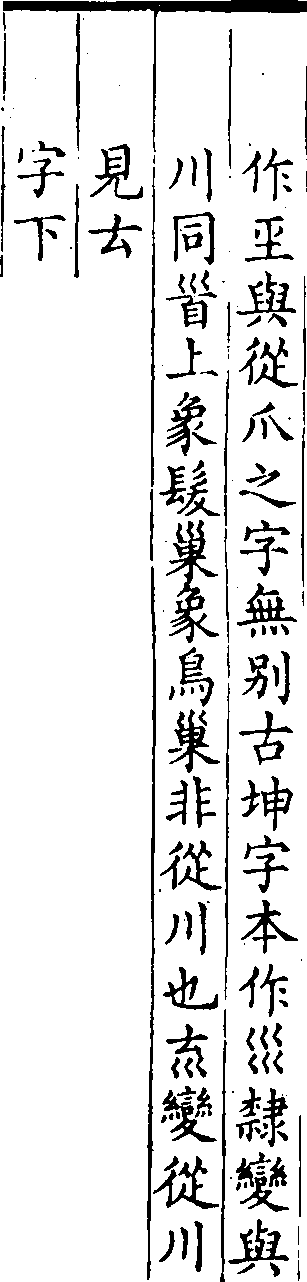 作坙與從爪之字無別古坤字本作巛隸變與
川同𩠐上象髮巢象鳥巢非從川也㐬變從川
見𠫓
字下